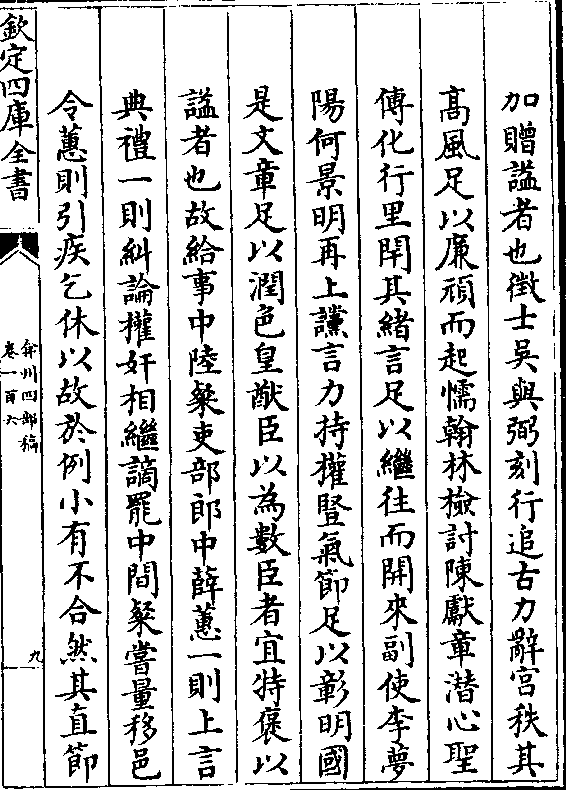 加贈諡者也徵士吳與弼刻行追古力辭宫秩其
髙風足以廉頑而起懦翰林檢討陳獻章潜心聖
傅化行里閈其緒言足以繼往而開來副使李夢
陽何景明再上讜言力持權豎氣節足以彰明國
是文章足以潤色皇猷臣以為數臣者宜特褒以
諡者也故給事中陸粲吏部郎中薛蕙一則上言
典禮一則糾論權奸相繼謫罷中間粲嘗量移邑
令蕙則引疾乞休以故於例小有不合然其直節
欽定四庫全書
弇州四部稿
卷一百六
九